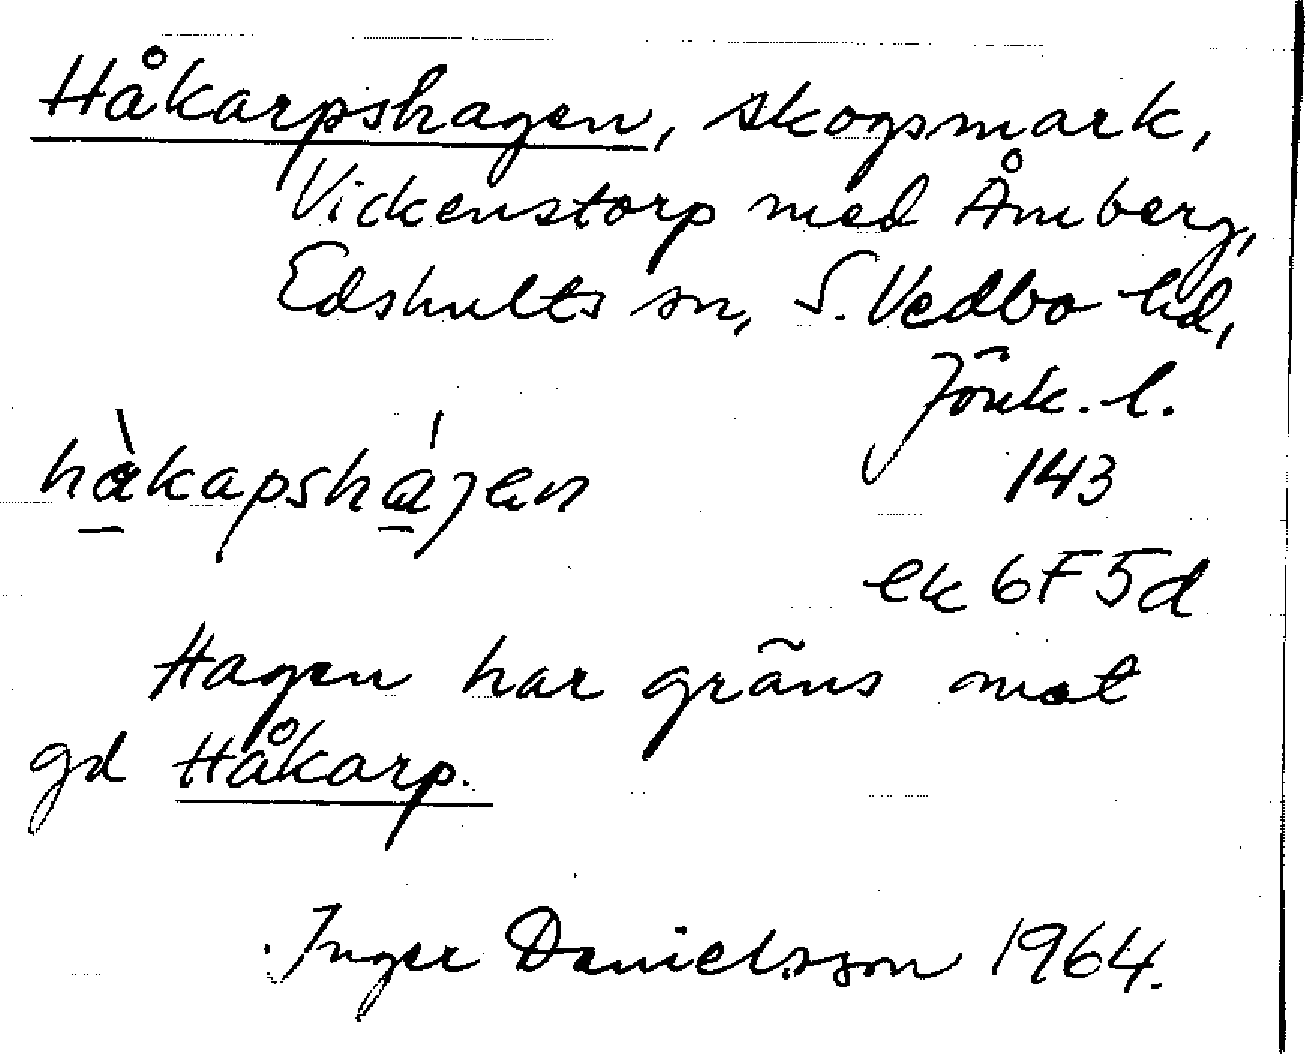 Håkarpshagen, skogsmark,
Vickenstorp med Åmberg,
Edshults sn, S. Vedbo hd,
Jönk. l.
hàkapshájen
143
ek 6F5d
Hagen har gräns mot
gd Håkarp.
Inger Danielsson 1964.